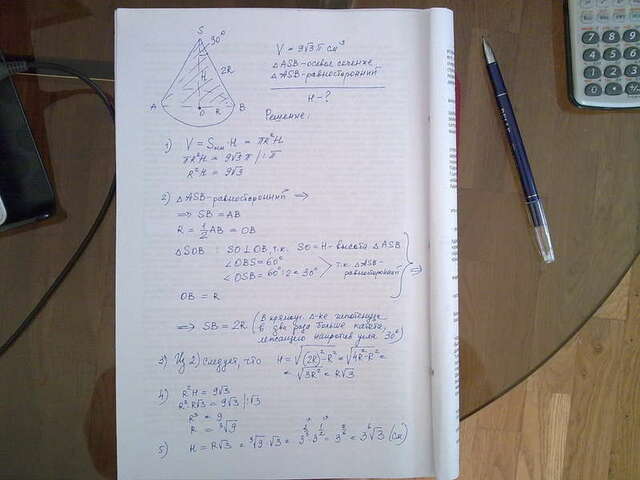 S
30°
H
2R
A
O
R
B
V = 9√3 π см³
△ASB - осевое сечение
△ASB - равносторонний
H - ?
Решение:
1) V = Sосн · H = πR²H
πR²H = 9√3 π /:π
R²H = 9√3
2) △ASB - равносторонний ⇒
⇒ SB = AB
R = 1/2 AB = OB
△SOB : SO ⊥ OB, т.к. SO = H - высота △ASB
∠OBS = 60°
∠OSB = 60°:2 = 30° > т.к. △ASB - равносторонний
OB = R
⇒
⇒ SB = 2R (в прямоуг. △-ке гипотенуза
в два раза больше катета,
лежащего напротив угла 30°)
3) Из 2) следует, что H = √((2R)² - R²) = √(4R² - R²) =
= √(3R²) = R√3
4) R²H = 9√3
R² R√3 = 9√3 /:√3
R³ = 9
R = ³√9
5) H = R√3 = ³√9 · √3 =
7
8
9
4
5
6
1
2
3
0